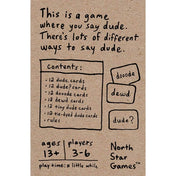 This is a game
where you say dude.
There's lots of different
ways to say dude.
Contents:
- 12 dude cards
- 12 dude? cards
- 12 dooode cards
- 12 dewd cards
- 12 tiny dude cards
- 12 tie-dyed dude cards
- rules
dooode
dewd
dude?
ages
13+
players
3-6
play time: a little while
North
Star
Games™